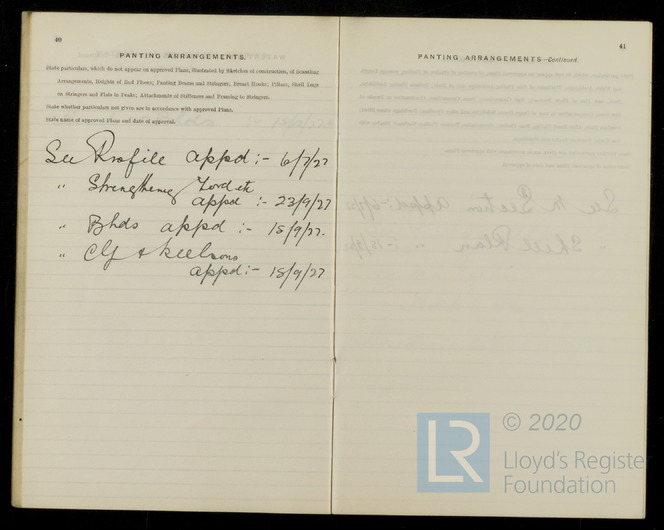 40
PANTING ARRANGEMENTS.
State particulars, which do not appear on approved Plans, illustrated by Sketches of construction, of Boxing
Arrangements, Heights of End Floors; Panting Beams and Stringers; Breast Hooks; Pillars, Shell Lugs
on Stringers and Flats in Peaks; Attachments of Stiffeners and Framing to Stringers.
State whether particulars not given are in accordance with approved Plans.
State name of approved Plans and date of approval.
See Profile appd :- 6/7/27
" Strengthening Forwd etc
appd :- 23/9/27
" Bhds appd :- 15/9/27.
" Cg & keelsons
appd :- 15/9/27
41
PANTING ARRANGEMENTS—Continued.
LR
© 2020
Lloyd's Register
Foundation